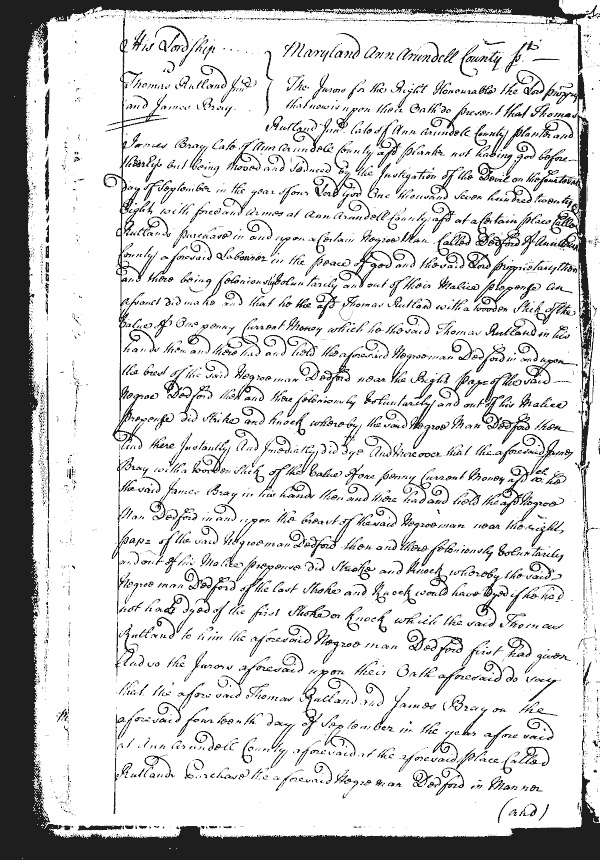 His Lordship . . . . .
Thomas Rutland Junr
and James Bray
Maryland Ann Arundell County sst
The Jurors for the Right Honourable the Lord propry
that now is upon their Oath do present that Thomas
Rutland Junr late of Ann Arundell County planter and
James Bray late of Ann Arundell County afd planter not having god before
their Eyes but being moved and seduced by the Instigation of the Devil on the fourteenth
day of September in the year of our Lord god One thousand seven hundred twenty
Eight with force and Armes at Ann Arundell County afd at a Certain place Called
Rutlands purchase in and upon a Certain Negroe Man Called Dedford of Ann Arun
County aforesaid Labourer in the peace of god and the said Lord proprietary then
and there being feloniously voluntarily and out of their Malice prepense an
assault did make and that he the afd Thomas Rutland with a wooden Stick of the
Value of One penny Current Money which he the said Thomas Rutland in his
hands then and there had and held the aforesaid Negroe man Dedford in and upon
the brest of the said Negroe man Dedford near the Right pape of the said
Negroe Dedford then and there feloniously Voluntarily and out of his Malice
prepense did Strike and knock whereby the said Negroe Man Dedford then
And there Instantly And Imediatly did dye And moreover that the aforesaid James
Bray with a wooden Stick of the Value of one penny Current Money afd wch he
the said James Bray in his hands then and there had and held the afd Negroe
Man Dedford in and upon the breast of the said Negroe man near the right
pape of the said Negroe man Dedford then and there feloniously Voluntarily
and out of his Malice prepense did Stroke and Knock whereby the said
Negroe man Dedford of the last Stroke and Knock would have Dyed if he had
not have dyed of the first Stroke or knock which the said Thomas
Rutland to him the aforesaid Negroe man Dedford first had given
And so the Jurors aforesaid upon their Oath aforesaid do say
that the aforesaid Thomas Rutland and James Bray on the
aforesaid fourteenth day of September in the year aforesaid
at Ann Arundell County aforesaid at the aforesaid place Called
Rutlands Purchase the aforesaid Negroe man Dedford in Manner
(and)